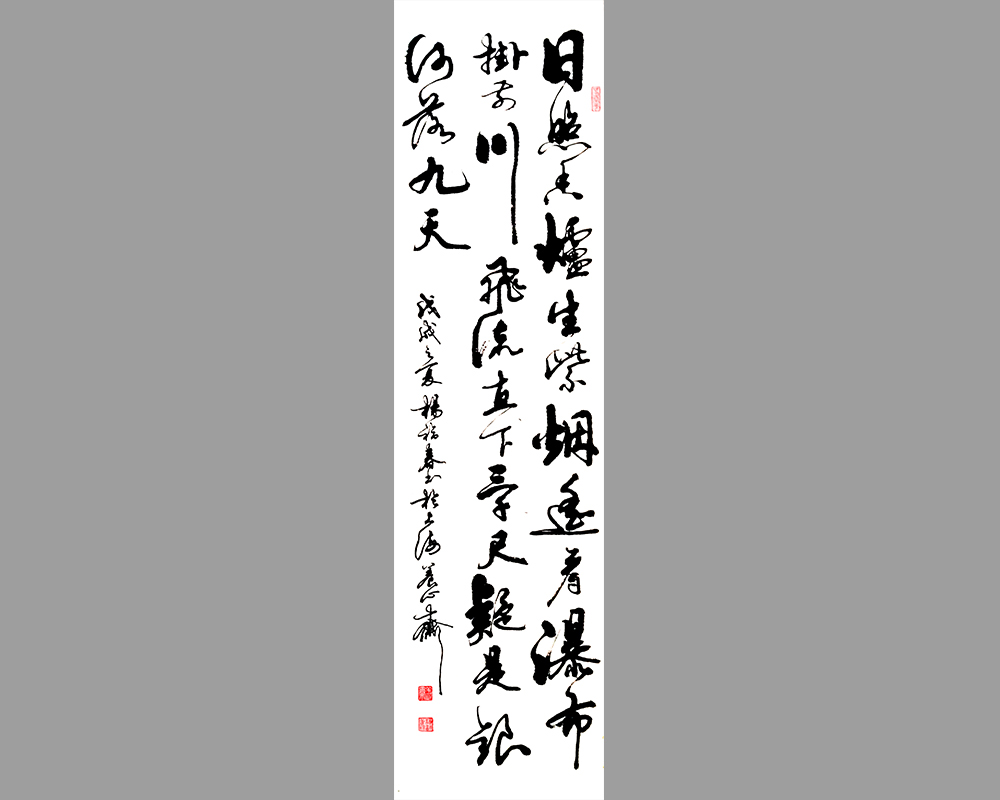 日照香爐生紫烟遙看瀑布
掛前川飛流直下三千尺疑是銀
河落九天
戊戌之夏楊福春书於上海養心齋